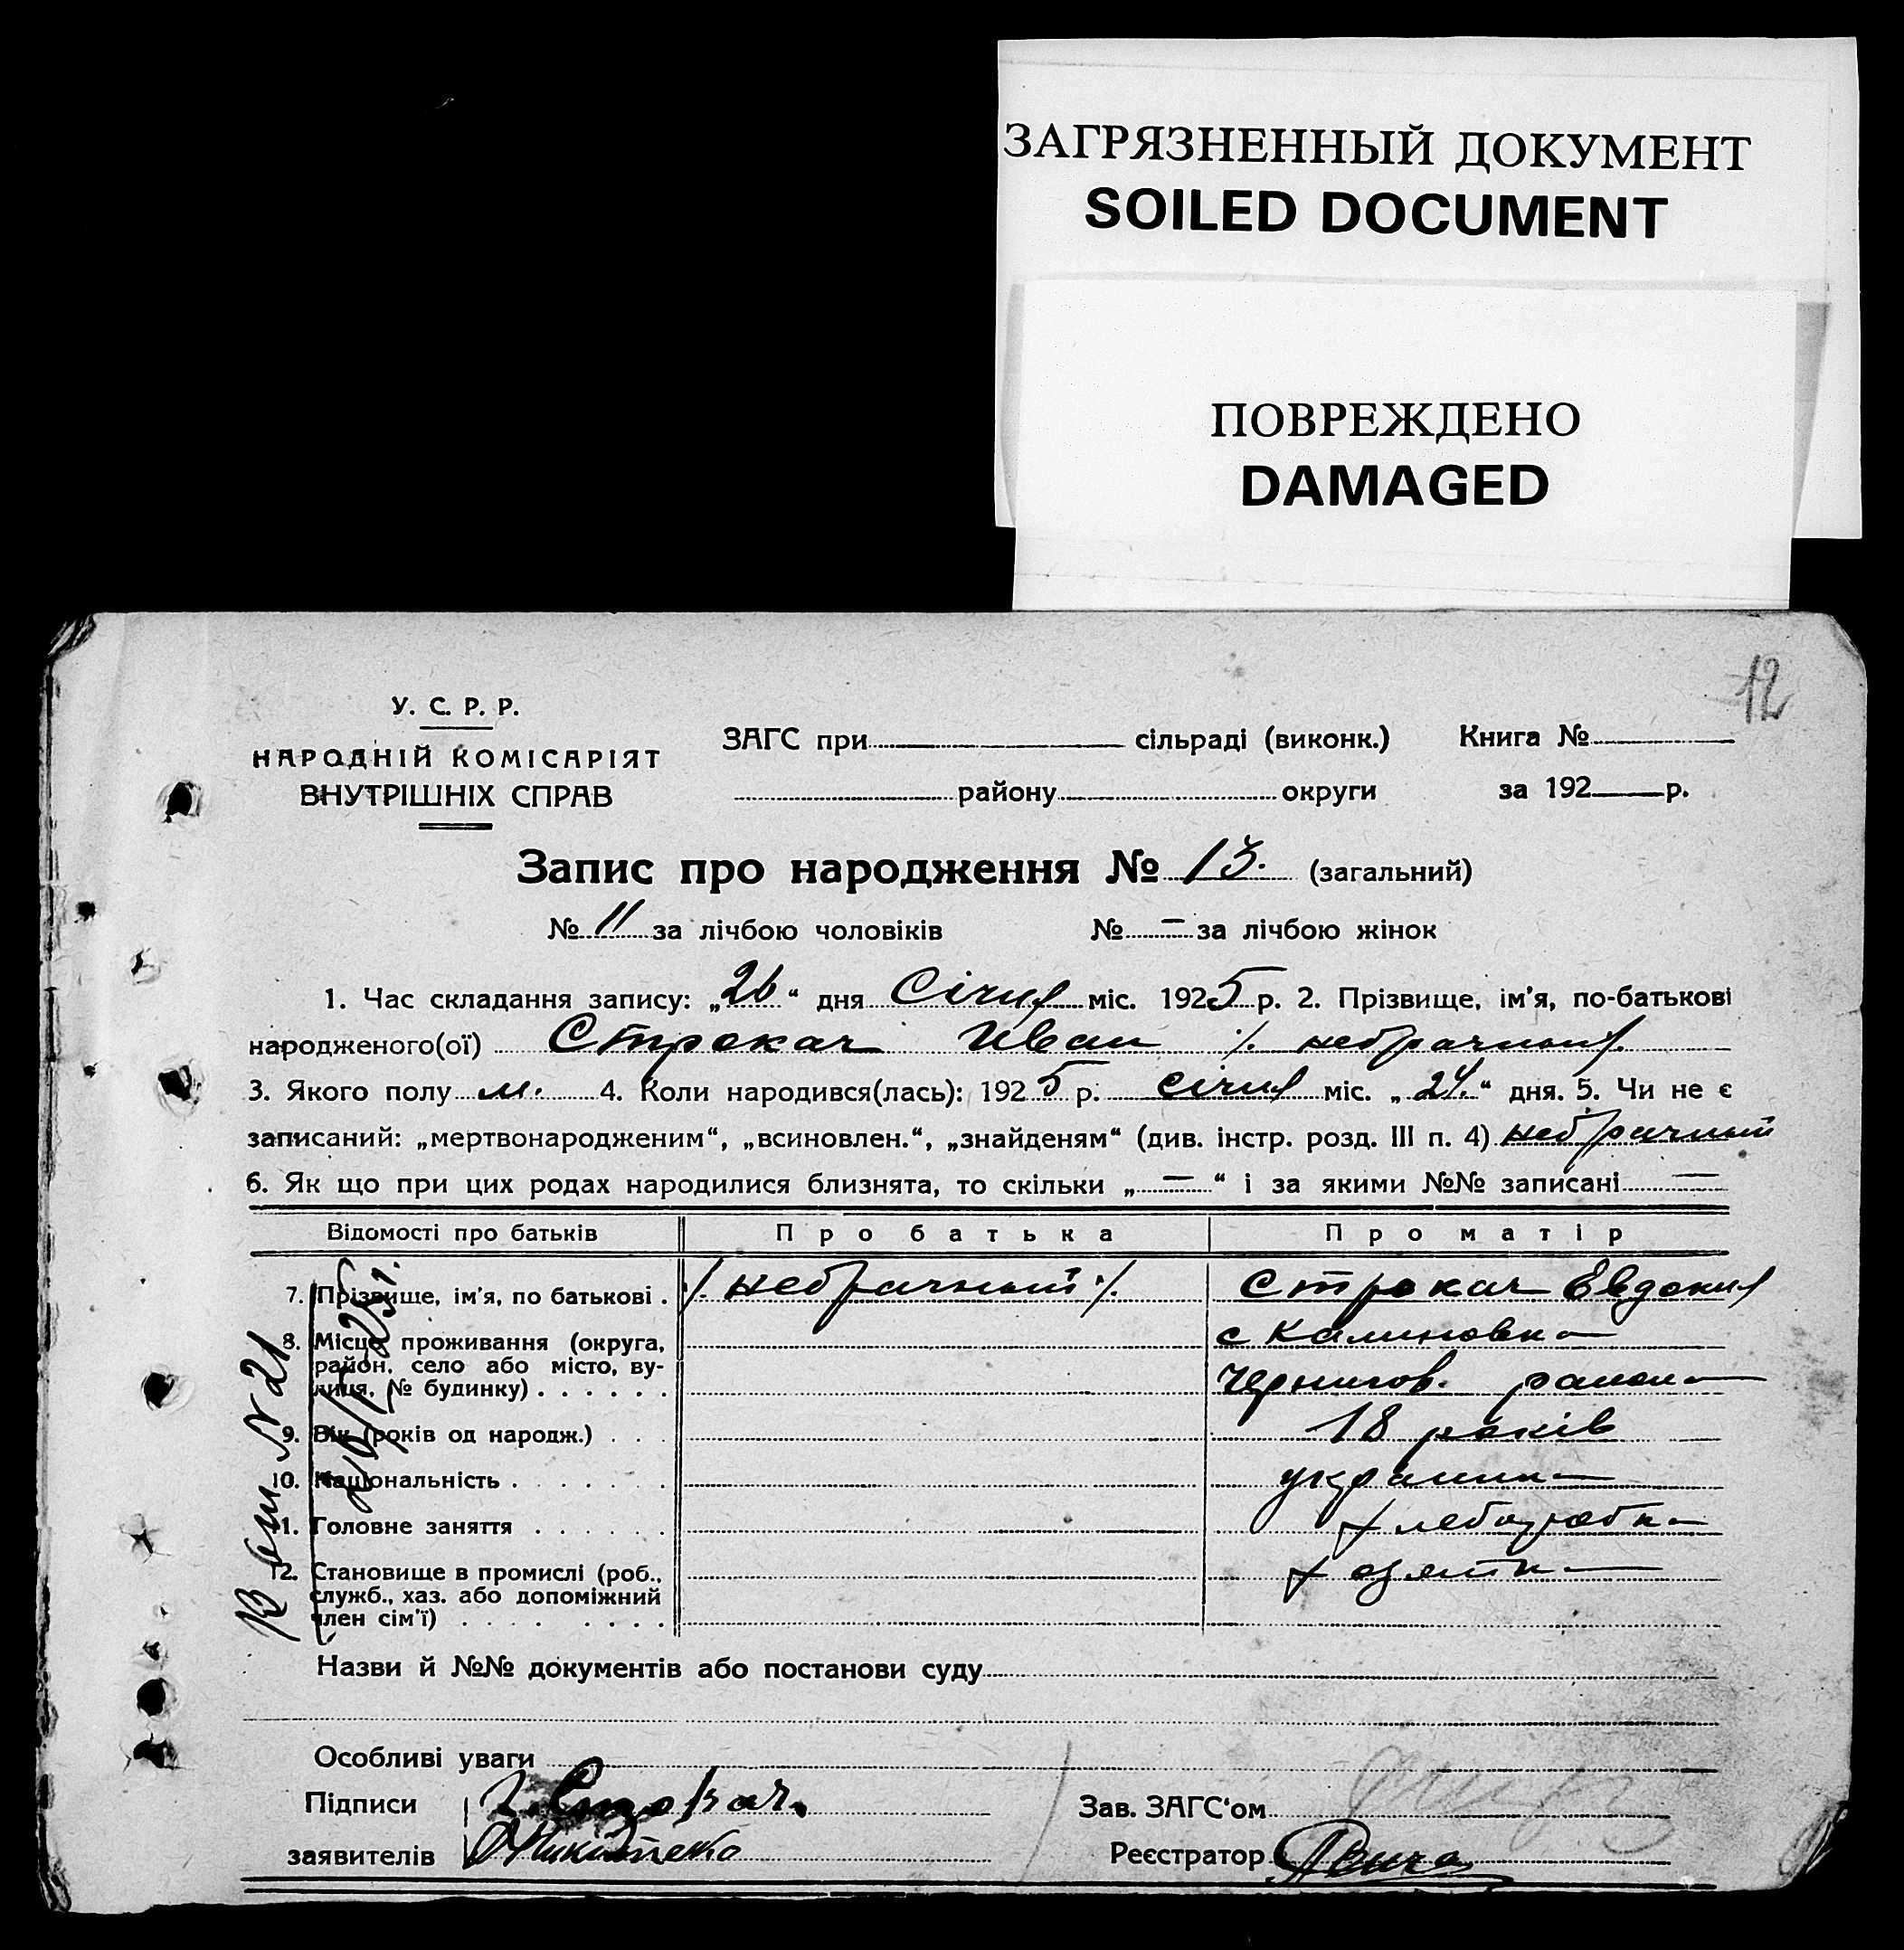 ЗАГРЯЗНЕННЫЙ ДОКУМЕНТ
SOILED DOCUMENT
ПОВРЕЖДЕНО
DAMAGED
12
У. С. Р. Р.
НАРОДНІЙ КОМІСАРІЯТ
ВНУТРІШНІХ СПРАВ
ЗАГС при сільраді (виконк.) Книга №
району округи за 192 р.
Запис про народження № 13. (загальний)
№ 11 за лічбою чоловіків № — за лічбою жінок
1. Час складання запису: „26“ дня Січня міс. 1925 р. 2. Прізвище, ім'я, по-батькові
народженого(ої) Строкач Иван /. небрачный /.
3. Якого полу м. 4. Коли народився(лась): 1925 р. січня міс. „24.“ дня. 5. Чи не є
записаний: „мертвонародженим“, „всиновлен.“, „знайденям“ (див. інстр. розд. III п. 4) небрачный
6. Як що при цих родах народилися близнята, то скільки „—“ і за якими №№ записані —
Відомості про батьків Про батька Про матір
7. Прізвище, ім'я, по батькові . /. небрачный /. Строкач Евдокия
8. Місце проживання (округа, район, село або місто, ву-лиця, № будинку) . . . . . . с Калиновка
Чернигов. района
9. Вік (років од народж.) . . . 18 років
10. Національність . . . . . . . украинка
11. Головне заняття . . . . . . хлеборобка
12. Становище в промислі (роб., служб., хаз. або допоміжний член сім'ї) . . . . . . . . хозяйка
В № 21
Назви й №№ документів або постанови суду
Особливі уваги
Підписи Строкач.
заявителів
Зав. ЗАГС'ом
Реєстратор